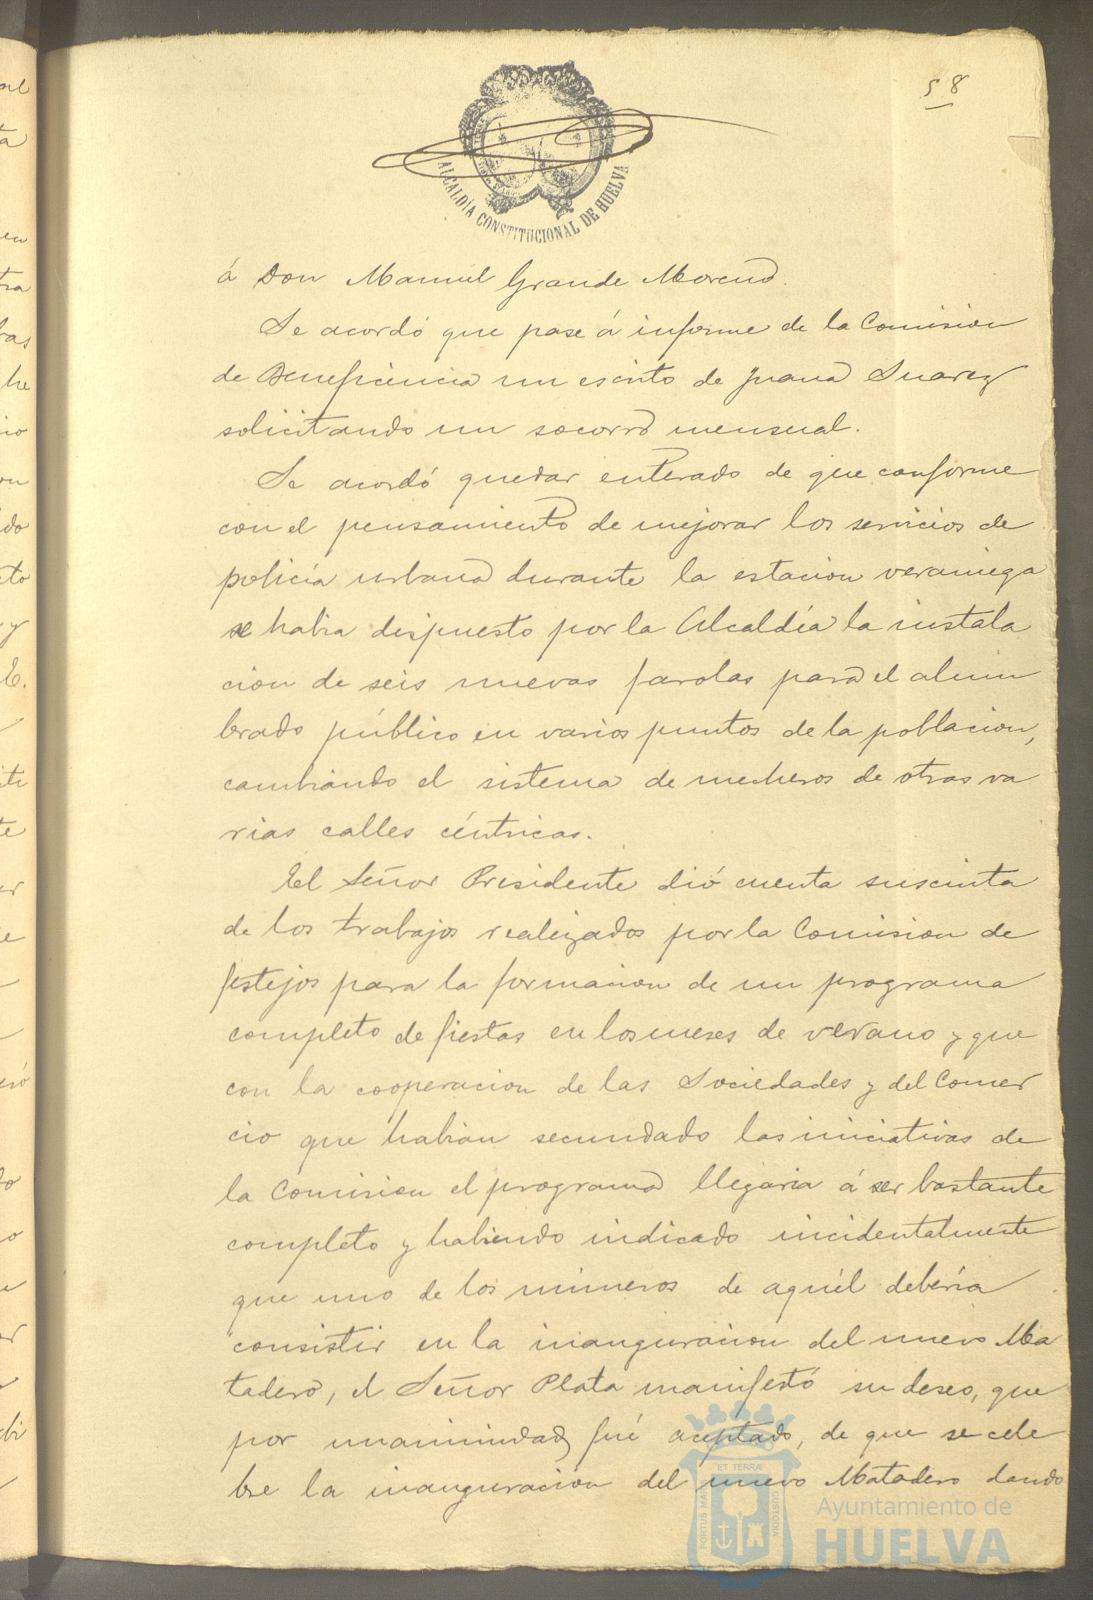 58
ALCALDÍA CONSTITUCIONAL DE HUELVA
á Don Manuel Grande Moreno.
Se acordó que pase á informe de la Comision
de Beneficencia un escrito de Juana Suarez
solicitando un socorro mensual.
Se acordó quedar enterado de que conforme
con el pensamiento de mejorar los servicios de
policía urbana durante la estacion veraniega
se habia dispuesto por la Alcaldía la instala
cion de seis nuevas farolas para el alum
brado público en varios puntos de la poblacion,
cambiando el sistema de mecheros de otras va
rias calles céntricas.
El Señor Presidente dió cuenta suscinta
de los trabajos realizados por la Comision de
festejos para la formacion de un programa
completo de fiestas en los meses de verano y que
con la cooperacion de las Sociedades y del Comer
cio que habian secundado las iniciativas de
la Comision el programa llegaria á ser bastante
completo y habiendo indicado incidentalmente
que uno de los números de aquél debería
consistir en la inauguracion del nuevo Ma
tadero, el Señor Plata manifestó su deseo, que
por unanimidad fué aceptado, de que se cele
bre la inauguracion del nuevo Matadero dando
PORTUS MARIS ET TERRÆ CUSTODIA
Ayuntamiento de
HUELVA